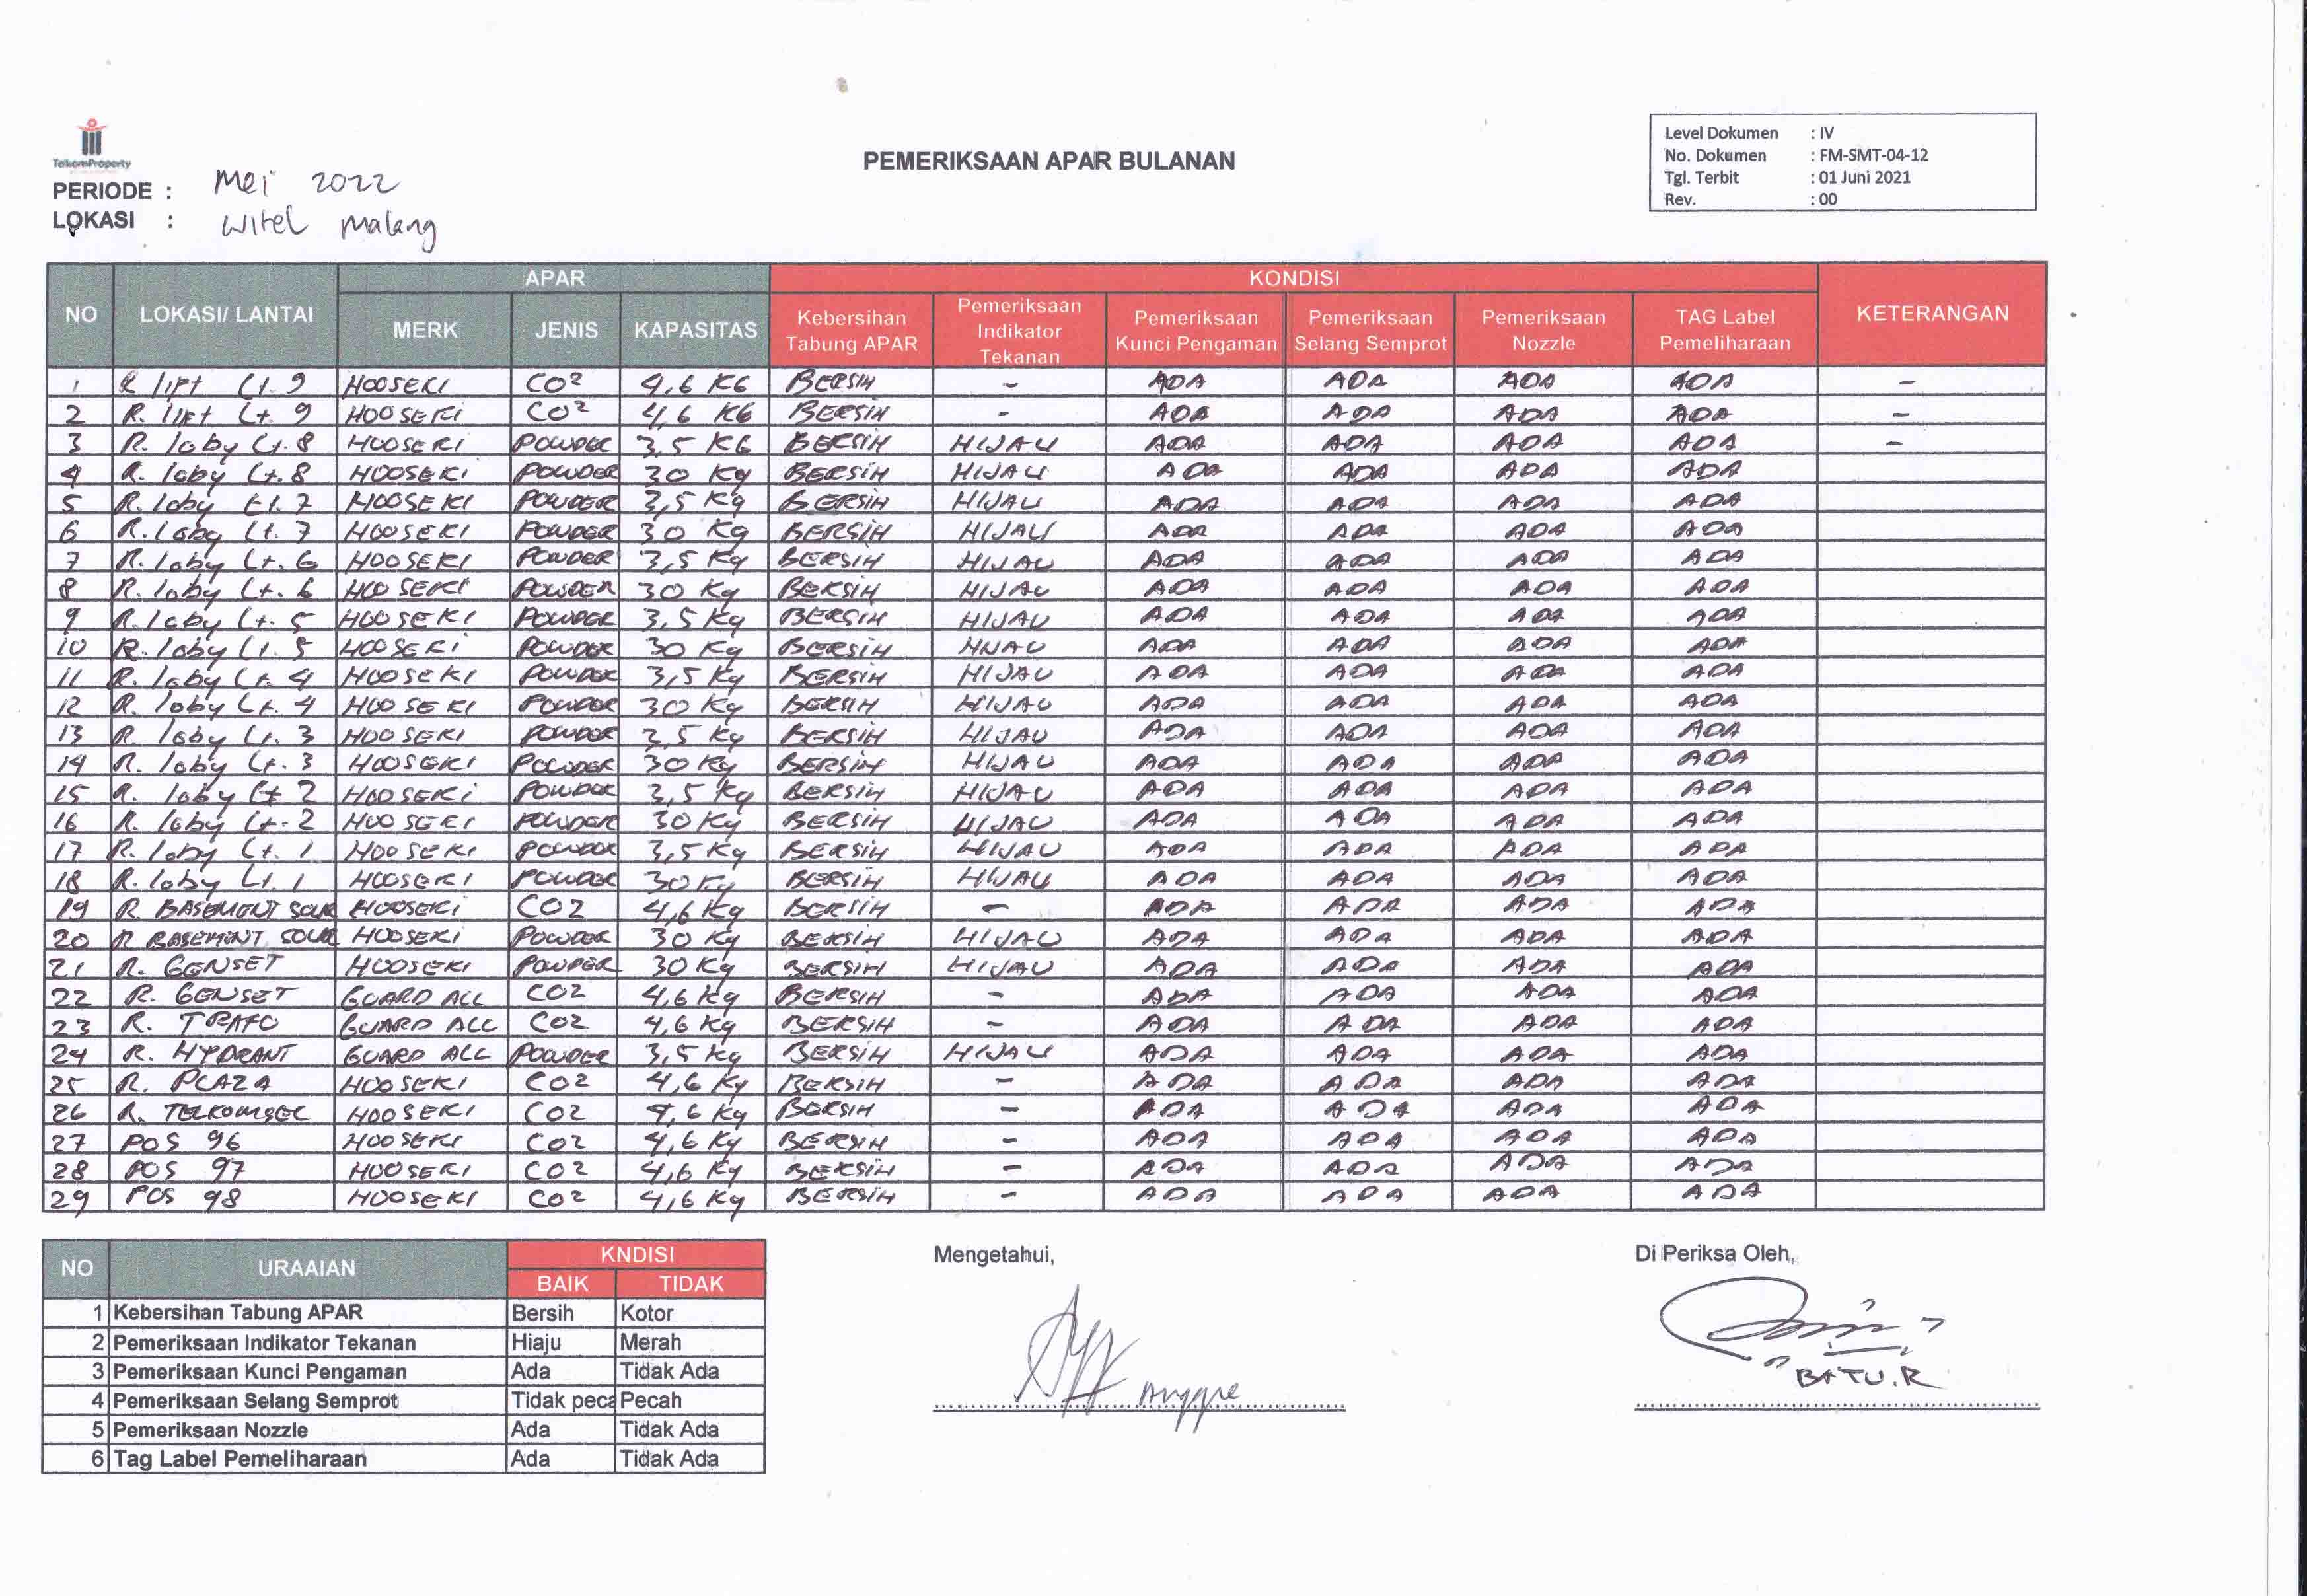 TelkomProperty
PERIODE : Mei 2022
LOKASI : Witel Malang
PEMERIKSAAN APAR BULANAN
Level Dokumen : IV
No. Dokumen : FM-SMT-04-12
Tgl. Terbit : 01 Juni 2021
Rev. : 00
NO LOKASI/ LANTAI APAR KONDISI KETERANGAN
MERK JENIS KAPASITAS Kebersihan Tabung APAR Pemeriksaan Indikator Tekanan Pemeriksaan Kunci Pengaman Pemeriksaan Selang Semprot Pemeriksaan Nozzle TAG Label Pemeliharaan
1 R lift Lt. 9 HOOSEKI CO² 4,6 KG BERSIH - ADA ADA ADA ADA -
2 R. lift Lt. 9 HOOSEKI CO² 4,6 KG BERSIH - ADA ADA ADA ADA -
3 R. loby Lt. 8 HOOSEKI POWDER 3,5 KG BERSIH HIJAU ADA ADA ADA ADA -
4 R. loby Lt. 8 HOOSEKI POWDER 30 Kg BERSIH HIJAU ADA ADA ADA ADA
5 R. loby Lt. 7 HOOSEKI POWDER 3,5 Kg BERSIH HIJAU ADA ADA ADA ADA
6 R. loby Lt. 7 HOOSEKI POWDER 30 Kg BERSIH HIJAU ADA ADA ADA ADA
7 R. loby Lt. 6 HOOSEKI POWDER 3,5 Kg BERSIH HIJAU ADA ADA ADA ADA
8 R. loby Lt. 6 HOOSEKI POWDER 30 Kg BERSIH HIJAU ADA ADA ADA ADA
9 R. loby Lt. 5 HOOSEKI POWDER 3,5 Kg BERSIH HIJAU ADA ADA ADA ADA
10 R. loby Lt. 5 HOOSEKI POWDER 30 Kg BERSIH HIJAU ADA ADA ADA ADA
11 R. loby Lt. 4 HOOSEKI POWDER 3,5 Kg BERSIH HIJAU ADA ADA ADA ADA
12 R. loby Lt. 4 HOOSEKI POWDER 30 Kg BERSIH HIJAU ADA ADA ADA ADA
13 R. loby Lt. 3 HOOSEKI POWDER 3,5 Kg BERSIH HIJAU ADA ADA ADA ADA
14 R. loby Lt. 3 HOOSEKI POWDER 30 Kg BERSIH HIJAU ADA ADA ADA ADA
15 R. loby Lt 2 HOOSEKI POWDER 3,5 Kg BERSIH HIJAU ADA ADA ADA ADA
16 R. loby Lt. 2 HOOSEKI POWDER 30 Kg BERSIH HIJAU ADA ADA ADA ADA
17 R. loby Lt. 1 HOOSEKI POWDER 3,5 Kg BERSIH HIJAU ADA ADA ADA ADA
18 R. loby Lt. 1 HOOSEKI POWDER 30 Kg BERSIH HIJAU ADA ADA ADA ADA
19 R. BASEMENT SOLAR HOOSEKI CO2 4,6 Kg BERSIH - ADA ADA ADA ADA
20 R BASEMENT SOLAR HOOSEKI POWDER 30 Kg BERSIH HIJAU ADA ADA ADA ADA
21 R. GENSET HOOSEKI POWDER 30 Kg BERSIH HIJAU ADA ADA ADA ADA
22 R. GENSET GUARD ALL CO2 4,6 Kg BERSIH - ADA ADA ADA ADA
23 R. TRAFO GUARD ALL CO2 4,6 Kg BERSIH - ADA ADA ADA ADA
24 R. HYDRANT GUARD ALL POWDER 3,5 Kg BERSIH HIJAU ADA ADA ADA ADA
25 R. PLAZA HOOSEKI CO2 4,6 Kg BERSIH - ADA ADA ADA ADA
26 R. TELKOMSEL HOOSEKI CO2 4,6 Kg BERSIH - ADA ADA ADA ADA
27 POS 96 HOOSEKI CO2 4,6 Kg BERSIH - ADA ADA ADA ADA
28 POS 97 HOOSEKI CO2 4,6 Kg BERSIH - ADA ADA ADA ADA
29 POS 98 HOOSEKI CO2 4,6 Kg BERSIH - ADA ADA ADA ADA
NO URAAIAN KNDISI
BAIK TIDAK
1 Kebersihan Tabung APAR Bersih Kotor
2 Pemeriksaan Indikator Tekanan Hiaju Merah
3 Pemeriksaan Kunci Pengaman Ada Tidak Ada
4 Pemeriksaan Selang Semprot Tidak peca Pecah
5 Pemeriksaan Nozzle Ada Tidak Ada
6 Tag Label Pemeliharaan Ada Tidak Ada
Mengetahui,
Anggre
Di Periksa Oleh,
BATU.R